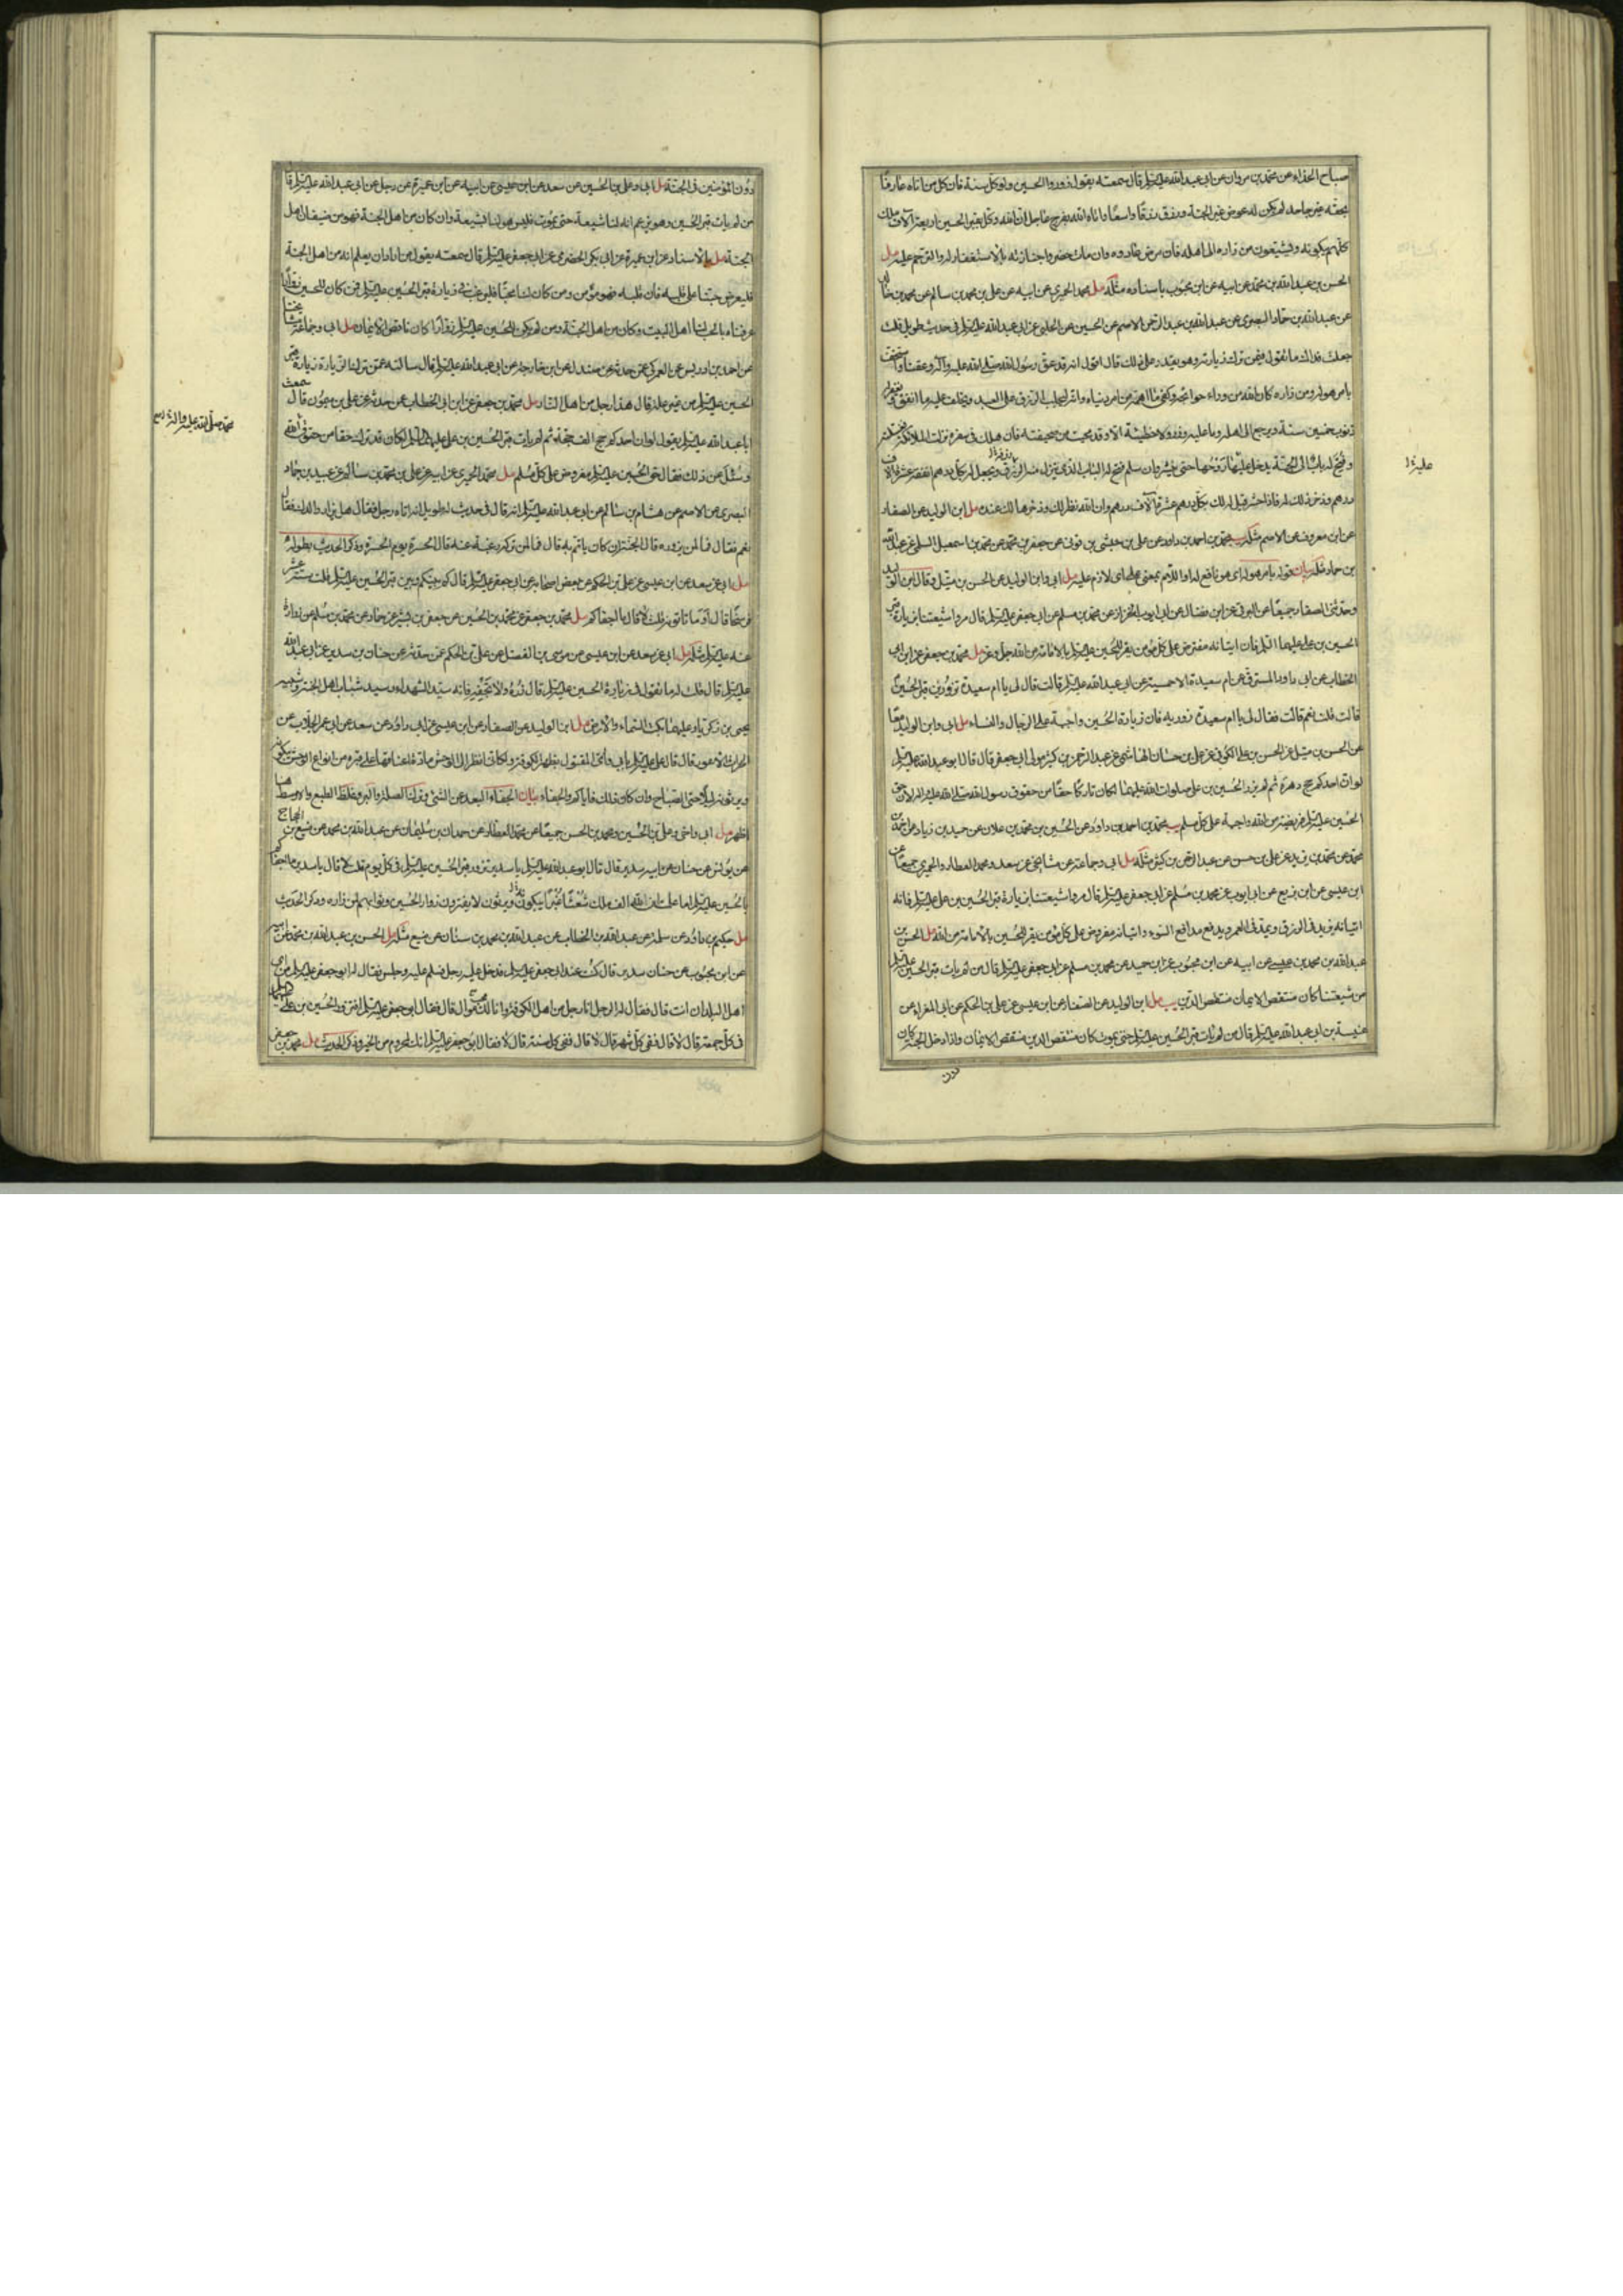 صباح الحذاء عن محمد بن مروان عن ابى عبد الله عليه السلم قال سمعته يقول زوروا الحسين ولو كل سنة فان كل من اتاه عارفا
بحقه غير جاحد لم يكن له عوض غير الجنة ورزق رزقا واسعا واتاه الله بفرج عاجل ان الله وكل بقبر الحسين اربعة الاف ملك
كلهم يبكونه ويشيعون من زاره الى اهله فان مرض عادوه وان مات حضروا جنازته بالاستغفار له والترحم عليه مل
الحسن بن عبد الله بن محمد عن ابيه عن ابن محبوب باسناده مثله مل محمد الحميرى عن ابيه عن على بن محمد بن سالم عن محمد بن خالد
عن عبد الله بن حماد البصرى عن عبد الله بن عبد الرحمن الاصم عن الحسين عن الحلبى عن ابى عبد الله عليه السلم فى حديث طويل قلت
جعلت فداك ما تقول فيمن ترك زيارته وهو يقدر على ذلك قال اقول انه قد عق رسول الله صلى الله عليه وآله وعقنا واستخف
بامر هو له ومن زاره كان الله من وراء حوائجه وكفى ما اهمه من امر دنياه وانه ليجلب الرزق على العبد ويخلف عليه ما انفق ويغفر له
ذنوب خمسين سنة ويرجع الى اهله وما عليه وزر ولا خطيئة الا وقد محيت من صحيفته فان هلك فى سفره نزلت الملائكة فغسلته
وفتح له باب الى الجنة يدخل عليه روحها حتى ينشر وان سلم فتح له الباب الذى ينزل منه الرزق ويجعل له بكل درهم انفقه عشرة الاف
درهم وذخر ذلك له فاذا حشر قيل له لك بكل درهم عشرة الاف درهم وان الله نظر لك وذخرها لك عنده مل ابن الوليد عن الصفار
عن ابن معروف عن الاصم مثله محمد بن احمد بن داود عن على بن حبشى بن قونى عن جعفر بن محمد عن محمد بن اسمعيل السلمى عن عبد الله
بن حماد مثله بيان قوله بامر هو له اى هو نافع له او اللام بمعنى على اى لازم عليه مل ابى وابن الوليد عن الحسن بن متيل وقال ابن الوليد
وحدثنى الصفار جميعا عن البرقى عن ابن فضال عن ابى ايوب الخزاز عن محمد بن مسلم عن ابى جعفر عليه السلم قال مروا شيعتنا بزيارة قبر
الحسين بن على عليهما السلم فان اتيانه مفترض على كل مؤمن يقر للحسين عليه السلم بالامامة من الله جل وعز مل محمد بن جعفر عن ابن ابى
الخطاب عن ابى داود المسترق عن ام سعيدة الاحمسية عن ابى عبد الله عليه السلم قالت قال لى يا ام سعيدة تزورين قبر الحسين
قالت قلت نعم قالت فقال لى يا ام سعيدة زوريه فان زيارة الحسين واجبة على الرجال والنساء مل ابى وابن الوليد معا
عن الحسن بن متيل عن الحسن بن على الكوفى عن على بن حسان الهاشمى عن عبد الرحمن بن كثير مولى ابى جعفر قال قال ابو عبد الله عليه السلم
لو ان احدكم حج دهره ثم لم يزر الحسين بن على صلوات الله عليهما لكان تاركا حقا من حقوق رسول الله صلى الله عليه واله لان حق
الحسين عليه السلم فريضة من الله واجبة على كل مسلم يب محمد بن احمد بن داود عن الحسين بن محمد بن علان عن حميد بن زياد عن احمد بن
محمد عن محمد بن يزيد عن على بن حسن عن عبد الرحمن بن كثير مثله مل ابى وجماعة عن مشايخى عن سعد ومحمد العطار والحميرى جميعا عن
ابن عيسى عن ابن بزيع عن ابى ايوب عن محمد بن مسلم عن ابى جعفر عليه السلم قال مروا شيعتنا بزيارة قبر الحسين بن على عليه السلم فانه
اتيانه يزيد فى الرزق ويمد فى العمر ويدفع مدافع السوء واتيانه مفروض على كل مؤمن يقر للحسين بالامامة من الله مل الحسن بن
عبد الله بن محمد بن عيسى عن ابيه عن ابن محبوب عن ابن حميد عن محمد بن مسلم عن ابى جعفر عليه السلم قال من لم يات قبر الحسين عليه السلم
من شيعتنا كان منتقص الايمان منتقص الدين يب مل ابن الوليد عن الصفار عن ابن عيسى عن على بن الحكم عن ابى المغراء عن
عنبسة بن ابى عبد الله عليه السلم قال من لم يات قبر الحسين عليه السلم حتى يموت كان منتقص الدين منتقص الايمان واذا دخل الجنة كان
دون
دون المؤمنين فى الجنة مل ابى وعلى بن الحسين عن سعد عن ابن عيسى عن ابيه عن ابن عميرة عن رجل عن ابى عبد الله عليه السلم قال
من لم يات قبر الحسين وهو يزعم انه لنا شيعة حتى يموت فليس هو لنا بشيعة وان كان من اهل الجنة فهو من ضيفان اهل
الجنة مل بالاسناد عن ابن عميرة عن ابى بكر الحضرمى عن ابى جعفر عليه السلم قال سمعته يقول من اراد ان يعلم انه من اهل الجنة
فليعرض حبنا على قلبه فان قبله فهو مؤمن ومن كان لنا محبا فليرغب فى زيارة قبر الحسين عليه السلم فمن كان للحسين زوارا
عرفناه بالحب لنا اهل البيت وكان من اهل الجنة ومن لم يكن للحسين عليه السلم زوارا كان ناقص الايمان مل ابى وجماعة مشايخنا
عن احمد بن ادريس عن العمركى عمن حدثه عن صندل عن ابن خارجة عن ابى عبد الله عليه السلم قال سالته عمن ترك الزيارة زيارة قبر
الحسين عليه السلم من غير علة قال هذا رجل من اهل النار مل محمد بن جعفر عن ابن ابى الخطاب عن حدثه عن على بن ميمون قال سمعت
ابا عبد الله عليه السلم يقول لو ان احدكم حج الف حجة ثم لم يات قبر الحسين بن على عليهما السلم لكان قد ترك حقا من حقوق الله
وسئل عن ذلك فقال حق الحسين عليه السلم مفروض على كل مسلم مل محمد الحميرى عن ابيه عن على بن محمد بن سالم عن عبد الله بن حماد
البصرى عن الاصم عن هشام بن سالم عن ابى عبد الله عليه السلم انه قال فى حديث له طويل انه اتاه رجل فقال هل يزار والدك فقال
نعم فقال فما لمن يزوره قال الجنة ان كان ياتم به قال فما لمن تركه رغبة عنه قال الحسرة يوم الحسرة وذكر الحديث بطوله
مل ابى عن سعد عن ابن عيسى عن على بن الحكم عن بعض اصحابه عن ابى جعفر عليه السلم قال كم بينكم وبين قبر الحسين عليه السلم قلت ستة عشر
فرسخا قال او ما تاتونه قلت لا قال ما اجفاكم مل محمد بن جعفر عن محمد بن الحسين عن جعفر بن بشير عن حماد عن محمد بن مسلم عن زرارة
عنه عليه السلم مثله مل ابى عن سعد عن ابن عيسى عن موسى بن الفضل عن على بن الحكم عمن حدثه عن حنان بن سدير عن ابى عبد الله
عليه السلم قال قلت له ما تقول فى زيارة الحسين عليه السلم قال زره ولا تجفه فانه سيد الشهداء وسيد شباب اهل الجنة وشبيه
يحيى بن زكريا وعليهما بكت السماء والارض مل ابن الوليد عن الصفار عن ابن عيسى عن ابى داود عن سعد عن ابى عمر الجلاب عن
الحارث الاعور قال قال على عليه السلم بابى وامى المقتول بظهر الكوفة ولكانى انظر الى الوحش مادة اعناقها على قبره من انواع الوحش يبكونه
ويرثونه ليلا حتى الصباح فاذا كان ذلك فاياكم والجفاء بيان الجفاء البعد عن الشئ وترك الصلة والبر وغلظ الطبع والاوسط هنا
اظهر مل ابى واخى وعلى بن الحسين ومحمد بن الحسن جميعا عن محمد العطار عن حمدان بن سليمان عن عبد الله بن محمد عن منيع بن الحجاج
عن يونس عن حنان عن ابيه سدير قال قال ابو عبد الله عليه السلم يا سدير تزور قبر الحسين عليه السلم فى كل يوم قلت لا قال يا سدير ما اجفاكم
بالحسين عليه السلم اما علمت ان لله الف ملك شعثا غبرا يبكونه ويرثون لا يفترون زوار الحسين وثوابهم لمن زاره وذكر الحديث
مل حكيم بن داود عن سلمة عن عبد الله بن الخطاب عن عبد الله بن محمد بن سنان عن منيع مثله مل الحسن بن عبد الله بن محمد عن ابيه
عن ابن محبوب عن حنان بن سدير قال كنت عند ابى جعفر عليه السلم فدخل عليه رجل فسلم عليه وجلس فقال له ابو جعفر عليه السلم من اى
اهل البلدان انت قال فقال له الرجل انا رجل من اهل الكوفة وانا لك موال قال فقال ابو جعفر عليه السلم افتزور الحسين بن على عليهما السلم
فى كل جمعة قال لا قال ففى كل شهر قال لا قال ففى كل سنة قال لا فقال ابو جعفر عليه السلم انك لمحروم من الخير وذكر الحديث مل محمد بن جعفر